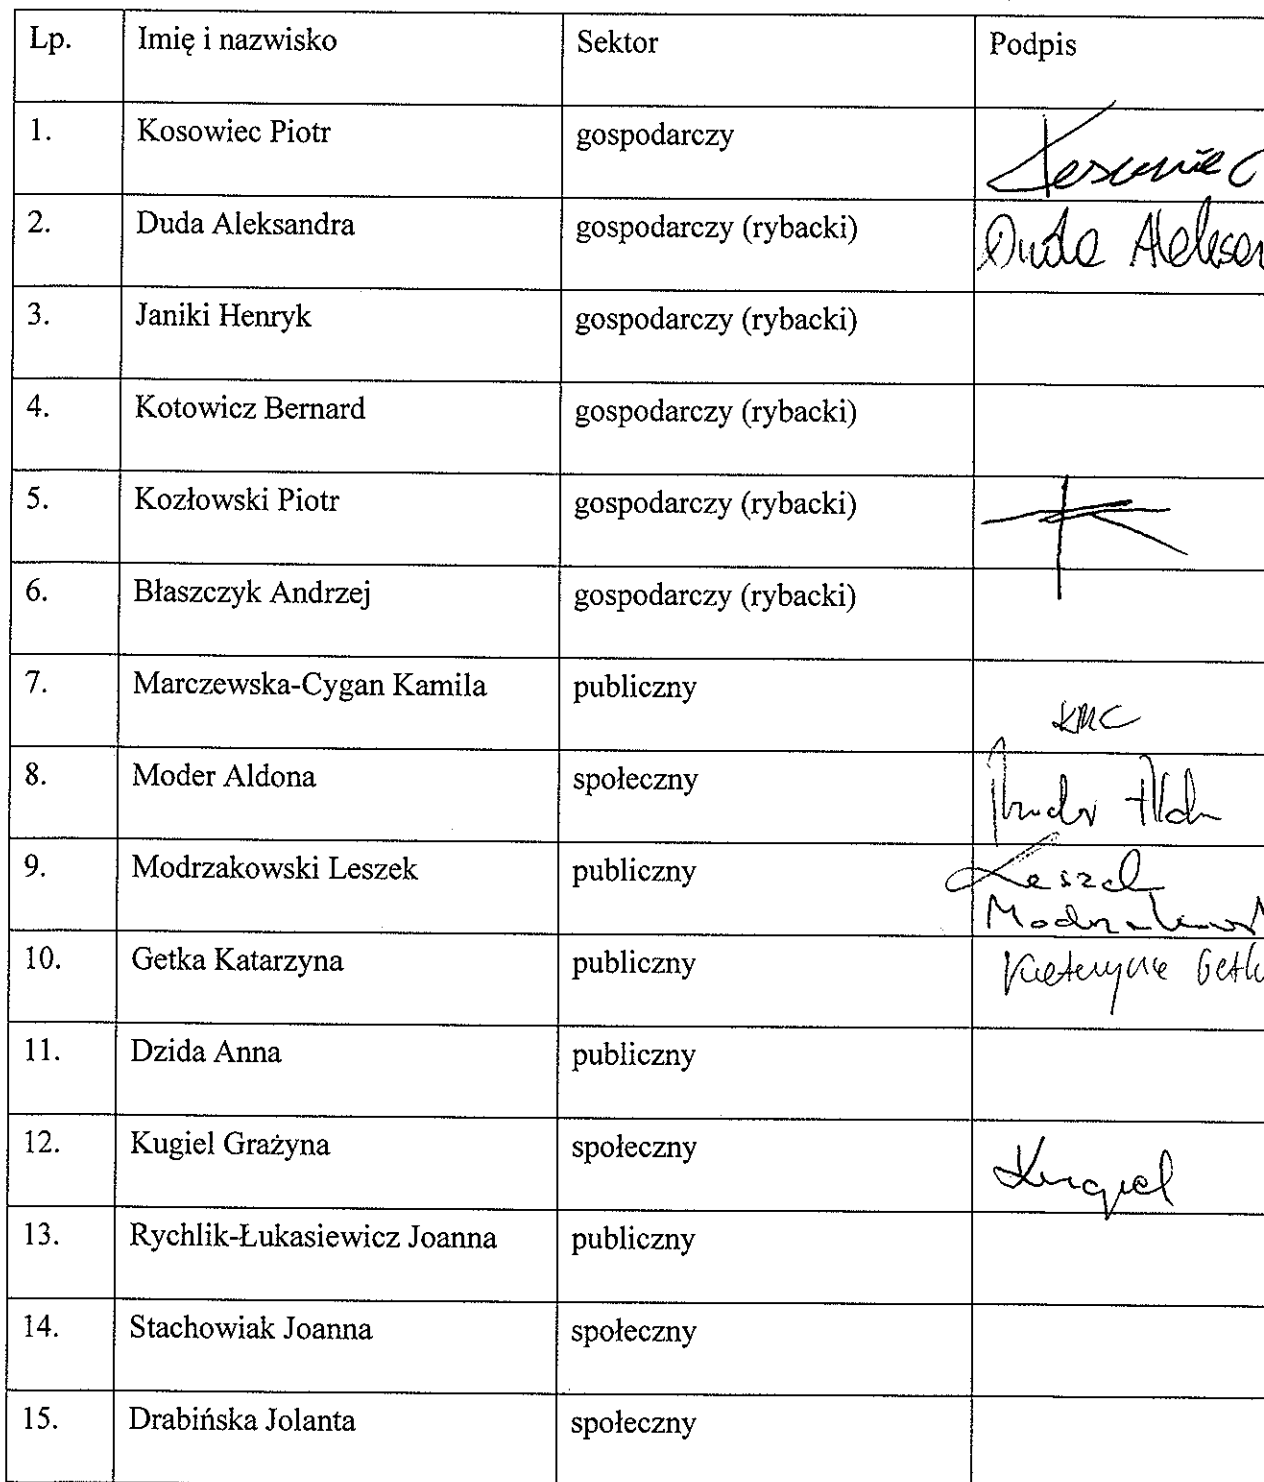 Lp. Imię i nazwisko Sektor Podpis
1. Kosowiec Piotr gospodarczy
2. Duda Aleksandra gospodarczy (rybacki) Duda Aleksan
3. Janiki Henryk gospodarczy (rybacki)
4. Kotowicz Bernard gospodarczy (rybacki)
5. Kozłowski Piotr gospodarczy (rybacki)
6. Błaszczyk Andrzej gospodarczy (rybacki)
7. Marczewska-Cygan Kamila publiczny KMC
8. Moder Aldona społeczny
9. Modrzakowski Leszek publiczny Leszek
10. Getka Katarzyna publiczny Katarzyna Getk
11. Dzida Anna publiczny
12. Kugiel Grażyna społeczny Kugiel
13. Rychlik-Łukasiewicz Joanna publiczny
14. Stachowiak Joanna społeczny
15. Drabińska Jolanta społeczny